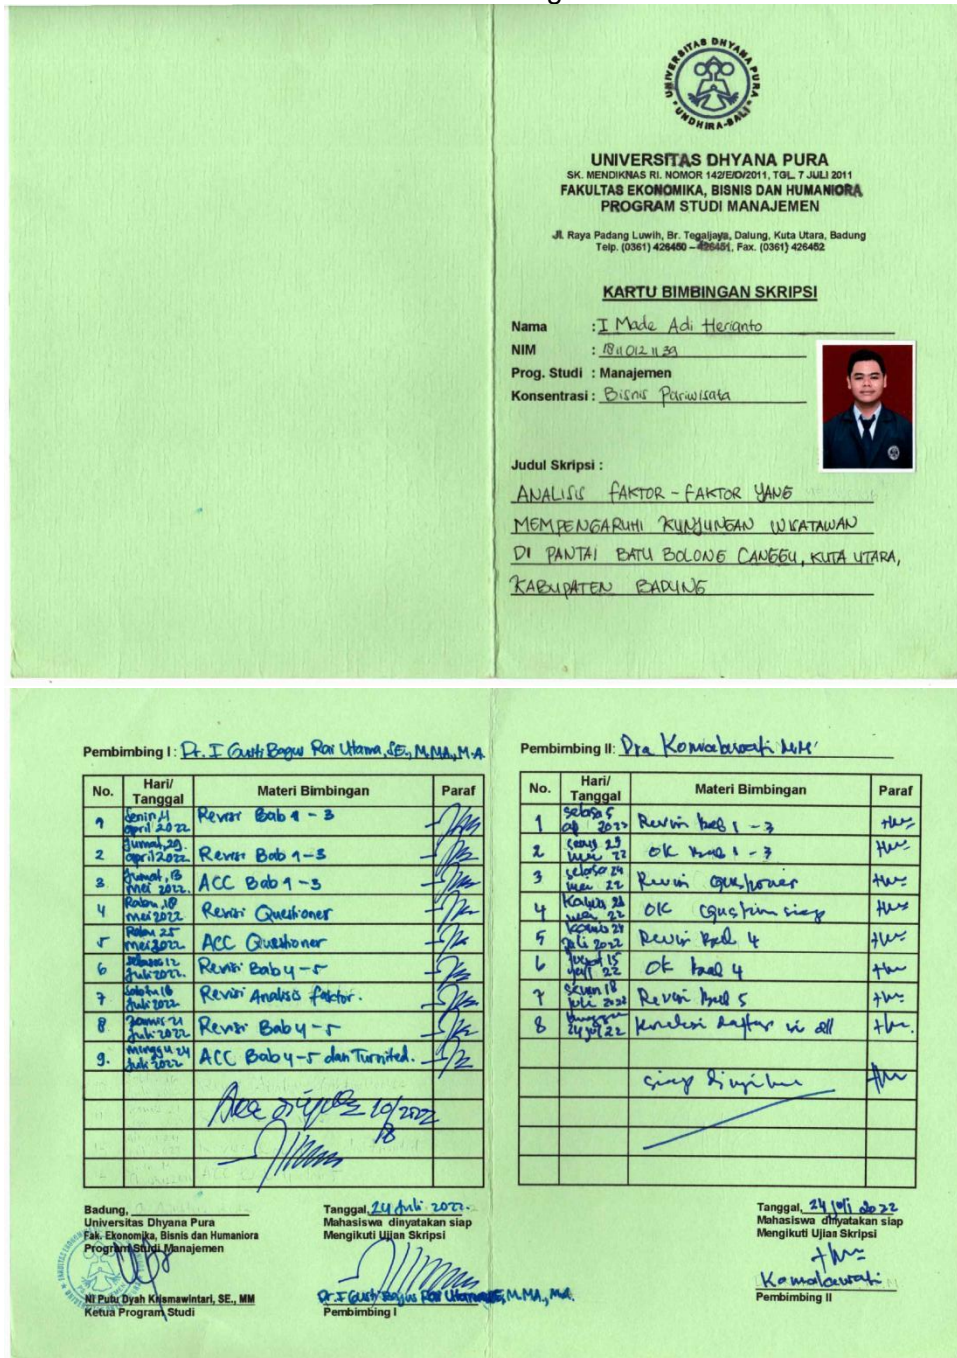 UNIVERSITAS DHYANA PURA
UNDHIRA-BALI
UNIVERSITAS DHYANA PURA
SK. MENDIKNAS RI. NOMOR 142/E/O/2011, TGL. 7 JULI 2011
FAKULTAS EKONOMIKA, BISNIS DAN HUMANIORA
PROGRAM STUDI MANAJEMEN
Jl. Raya Padang Luwih, Br. Tegaljaya, Dalung, Kuta Utara, Badung
Telp. (0361) 426450 – 426451, Fax. (0361) 426452
KARTU BIMBINGAN SKRIPSI
Nama : I Made Adi Herianto
NIM : 18110121139
Prog. Studi : Manajemen
Konsentrasi : Bisnis Pariwisata
Judul Skripsi :
ANALISIS FAKTOR - FAKTOR YANG
MEMPENGARUHI KUNJUNGAN WISATAWAN
DI PANTAI BATU BOLONG CANGGU, KUTA UTARA,
KABUPATEN BADUNG
Pembimbing I : Dr. I Gusti Bagus Rai Utama, SE., M.MA., M.A.
No. Hari/Tanggal Materi Bimbingan Paraf
1 Senin, 4 april 2022 Revisi Bab 1 - 3
2 Jumat, 29. april 2022 Revisi Bab 1-3
3. Jumat, 13 mei 2022. ACC Bab 1-3
4 Rabu, 18 mei 2022 Revisi Questioner
5 Rabu 25 mei 2022 ACC Questioner
6 selasa 12 Juli 2022. Revisi Bab 4-5
7 Sabtu 16 Juli 2022 Revisi Analisis faktor.
8 Kamis 21 Juli 2022 Revisi Bab 4-5
9. Minggu 24 Juli 2022 ACC Bab 4-5 dan Turnited.
Badung,
Universitas Dhyana Pura
Fak. Ekonomika, Bisnis dan Humaniora
Program Studi Manajemen
Ni Putu Dyah Krismawintari, SE., MM
Ketua Program Studi
Tanggal, 24 Juli 2022.
Mahasiswa dinyatakan siap
Mengikuti Ujian Skripsi
Dr. I Gusti Bagus Rai Utama, SE, M.MA., M.A.
Pembimbing I
Pembimbing II: Dra Komalawati MM
No. Hari/Tanggal Materi Bimbingan Paraf
1 selasa 5 2022 Revisi bab 1 - 3
2 22 OK bab 1 - 3
3 selasa 24 mei 22 Revisi
4 Kamis mei 22 OK
5 Kamis Juli 2022 Revisi bab 4
6 15 22 OK bab 4
7 Senin 18 Juli 2022 Revisi bab 5
8 Minggu 24 Juli 22 daftar
Tanggal, 24 Juli 2022
Mahasiswa dinyatakan siap
Mengikuti Ujian Skripsi
Komalawati
Pembimbing II